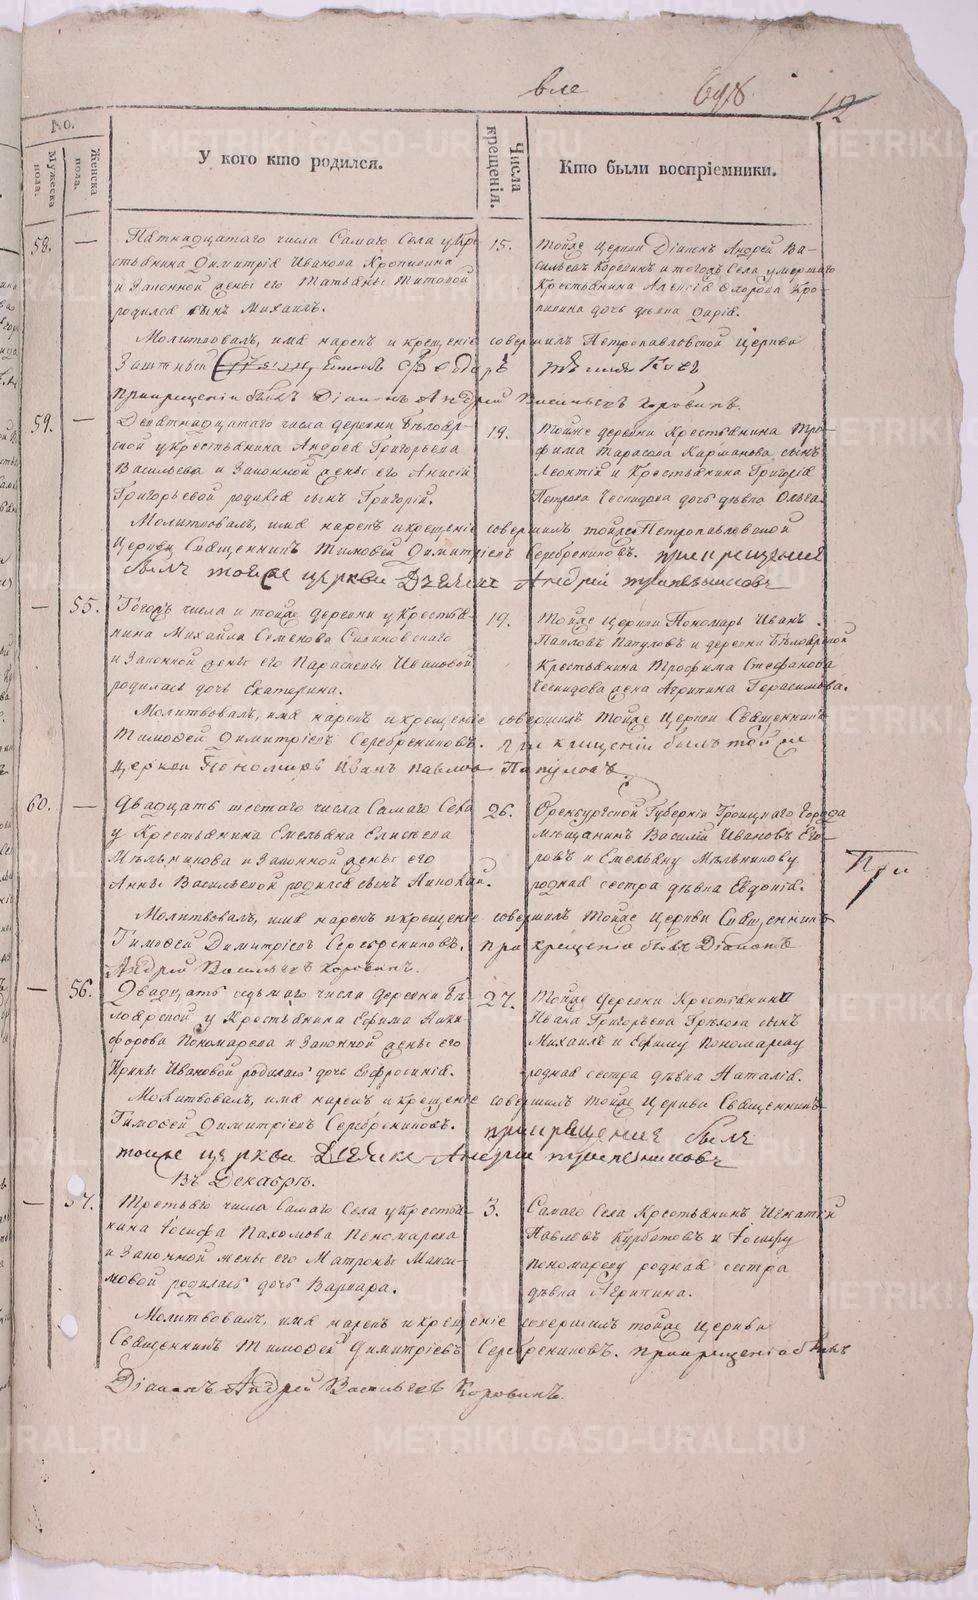 вле 698 12
No.
Мужеска пола.
Женска пола.
У кого кто родился.
Числа крещенія.
Кто были воспріемники.
58. — Пятнадцатаго числа Самаго Села у Кре-
стьянина Димитрія Иванова Кропинина
и Законной жены его Татьяны Титовой
родился сынъ Михаилъ.
15. Тойже Церкви Діаконъ Андрей Ва-
сильевъ Коровинъ и тогожъ Села умершаго
Крестьянина Алексѣя Ѳедорова Кро-
пинина дочь дѣвка Дарія.
Молитвовалъ, имя нарекъ и крещеніе совершилъ Петропавловской Церкви
Заштатный
При крещеніи былъ Діаконъ Андрей Васильевъ Коровинъ.
59. — Девятнадцатаго числа деревни Бѣлояр-
ской у крестьянина Андрея Григорьева
Васильева и Законной жены его Анисіи
Григорьевой родился сынъ Григорій.
19. Тойже деревни Крестьянина Тро-
фима Тарасова Карманова сынъ
Леонтій и Крестьянина Григорія
Петрова дочь дѣвка Ольга.
Молитвовалъ, имя нарекъ и крещеніе совершилъ тойже Петропавловской
Церкви Священникъ Тимоѳей Димитріевъ Серебрениковъ. При крещеніе
былъ тойже церкви Дьячекъ Андрей
— 55. Тогожъ числа и тойже деревни у Крестья-
нина Михайла Семенова
и Законной жены его Параскевы Ивановой
родилась дочь Екатерина.
19. Тойже Церкви Пономарь Иванъ
Павловъ Папуловъ и деревни Бѣлоярской
Крестьянина Трофима Стефанова
жена Агрипина Герасимова.
Молитвовалъ, имя нарекъ и крещеніе совершилъ тойже Церкви Священникъ
Тимоѳей Димитріевъ Серебрениковъ. При крещеніи былъ тойже
церкви Пономарь Иванъ Павловъ Папуловъ
60. — Двадцать шестаго числа Самаго Села
у Крестьянина Емельяна Елисеева
Мѣльникова и Законной жены его
Анны Васильевой родился сынъ Николай.
26. Оренбургской Губерніи Троицкаго Города
Мѣщанинъ Василій Ивановъ Его-
ровъ и Емельяну Мѣльникову
родная сестра дѣвка Евдокія.
При
Молитвовалъ, имя нарекъ и крещеніе совершилъ тойже Церкви Священникъ
Тимоѳей Димитріевъ Серебрениковъ. При крещеніе былъ Діаконъ
Андрей Васильевъ Коровинъ.
— 56. Двадцать седьмаго числа деревни Бѣ-
лоярской у Крестьянина Ефима Ники-
форова Пономарева и Законной жены его
Ирины Ивановой родилась дочь Ефросинія.
27. Тойже деревни Крестьянина
Ивана Григорьева Грѣхова сынъ
Михаилъ и Ефиму Пономареву
родная сестра дѣвка Наталія.
Молитвовалъ, имя нарекъ и крещеніе совершилъ тойже Церкви Священникъ
Тимоѳей Димитріевъ Серебрениковъ. При крещеніе былъ
тойже церкви Дьячекъ Андрей
Въ Декабрѣ.
— 57. Третьяго числа Самаго Села у крестья-
нина Іосифа Пахомова Пономарева
и Законной жены его Матроны Макси-
мовой родилась дочь Варвара.
3. Самаго Села Крестьянинъ Игнатій
Павловъ Курбатовъ и Іосифу
Пономареву родная сестра
дѣвка Агрипина.
Молитвовалъ, имя нарекъ и крещеніе совершилъ тойже Церкви
Священникъ Тимоѳей Димитріевъ Серебрениковъ. При крещеніе былъ
Діаконъ Андрей Васильевъ Коровинъ.
METRIKI.GASO-URAL.RU